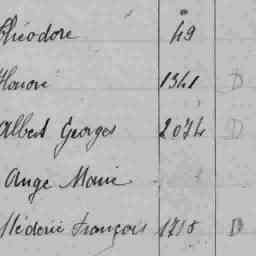 Théodore 49
Honoré 1341 D
Albert Georges 2074 D
Ange Marie
Médéric François 1718 D